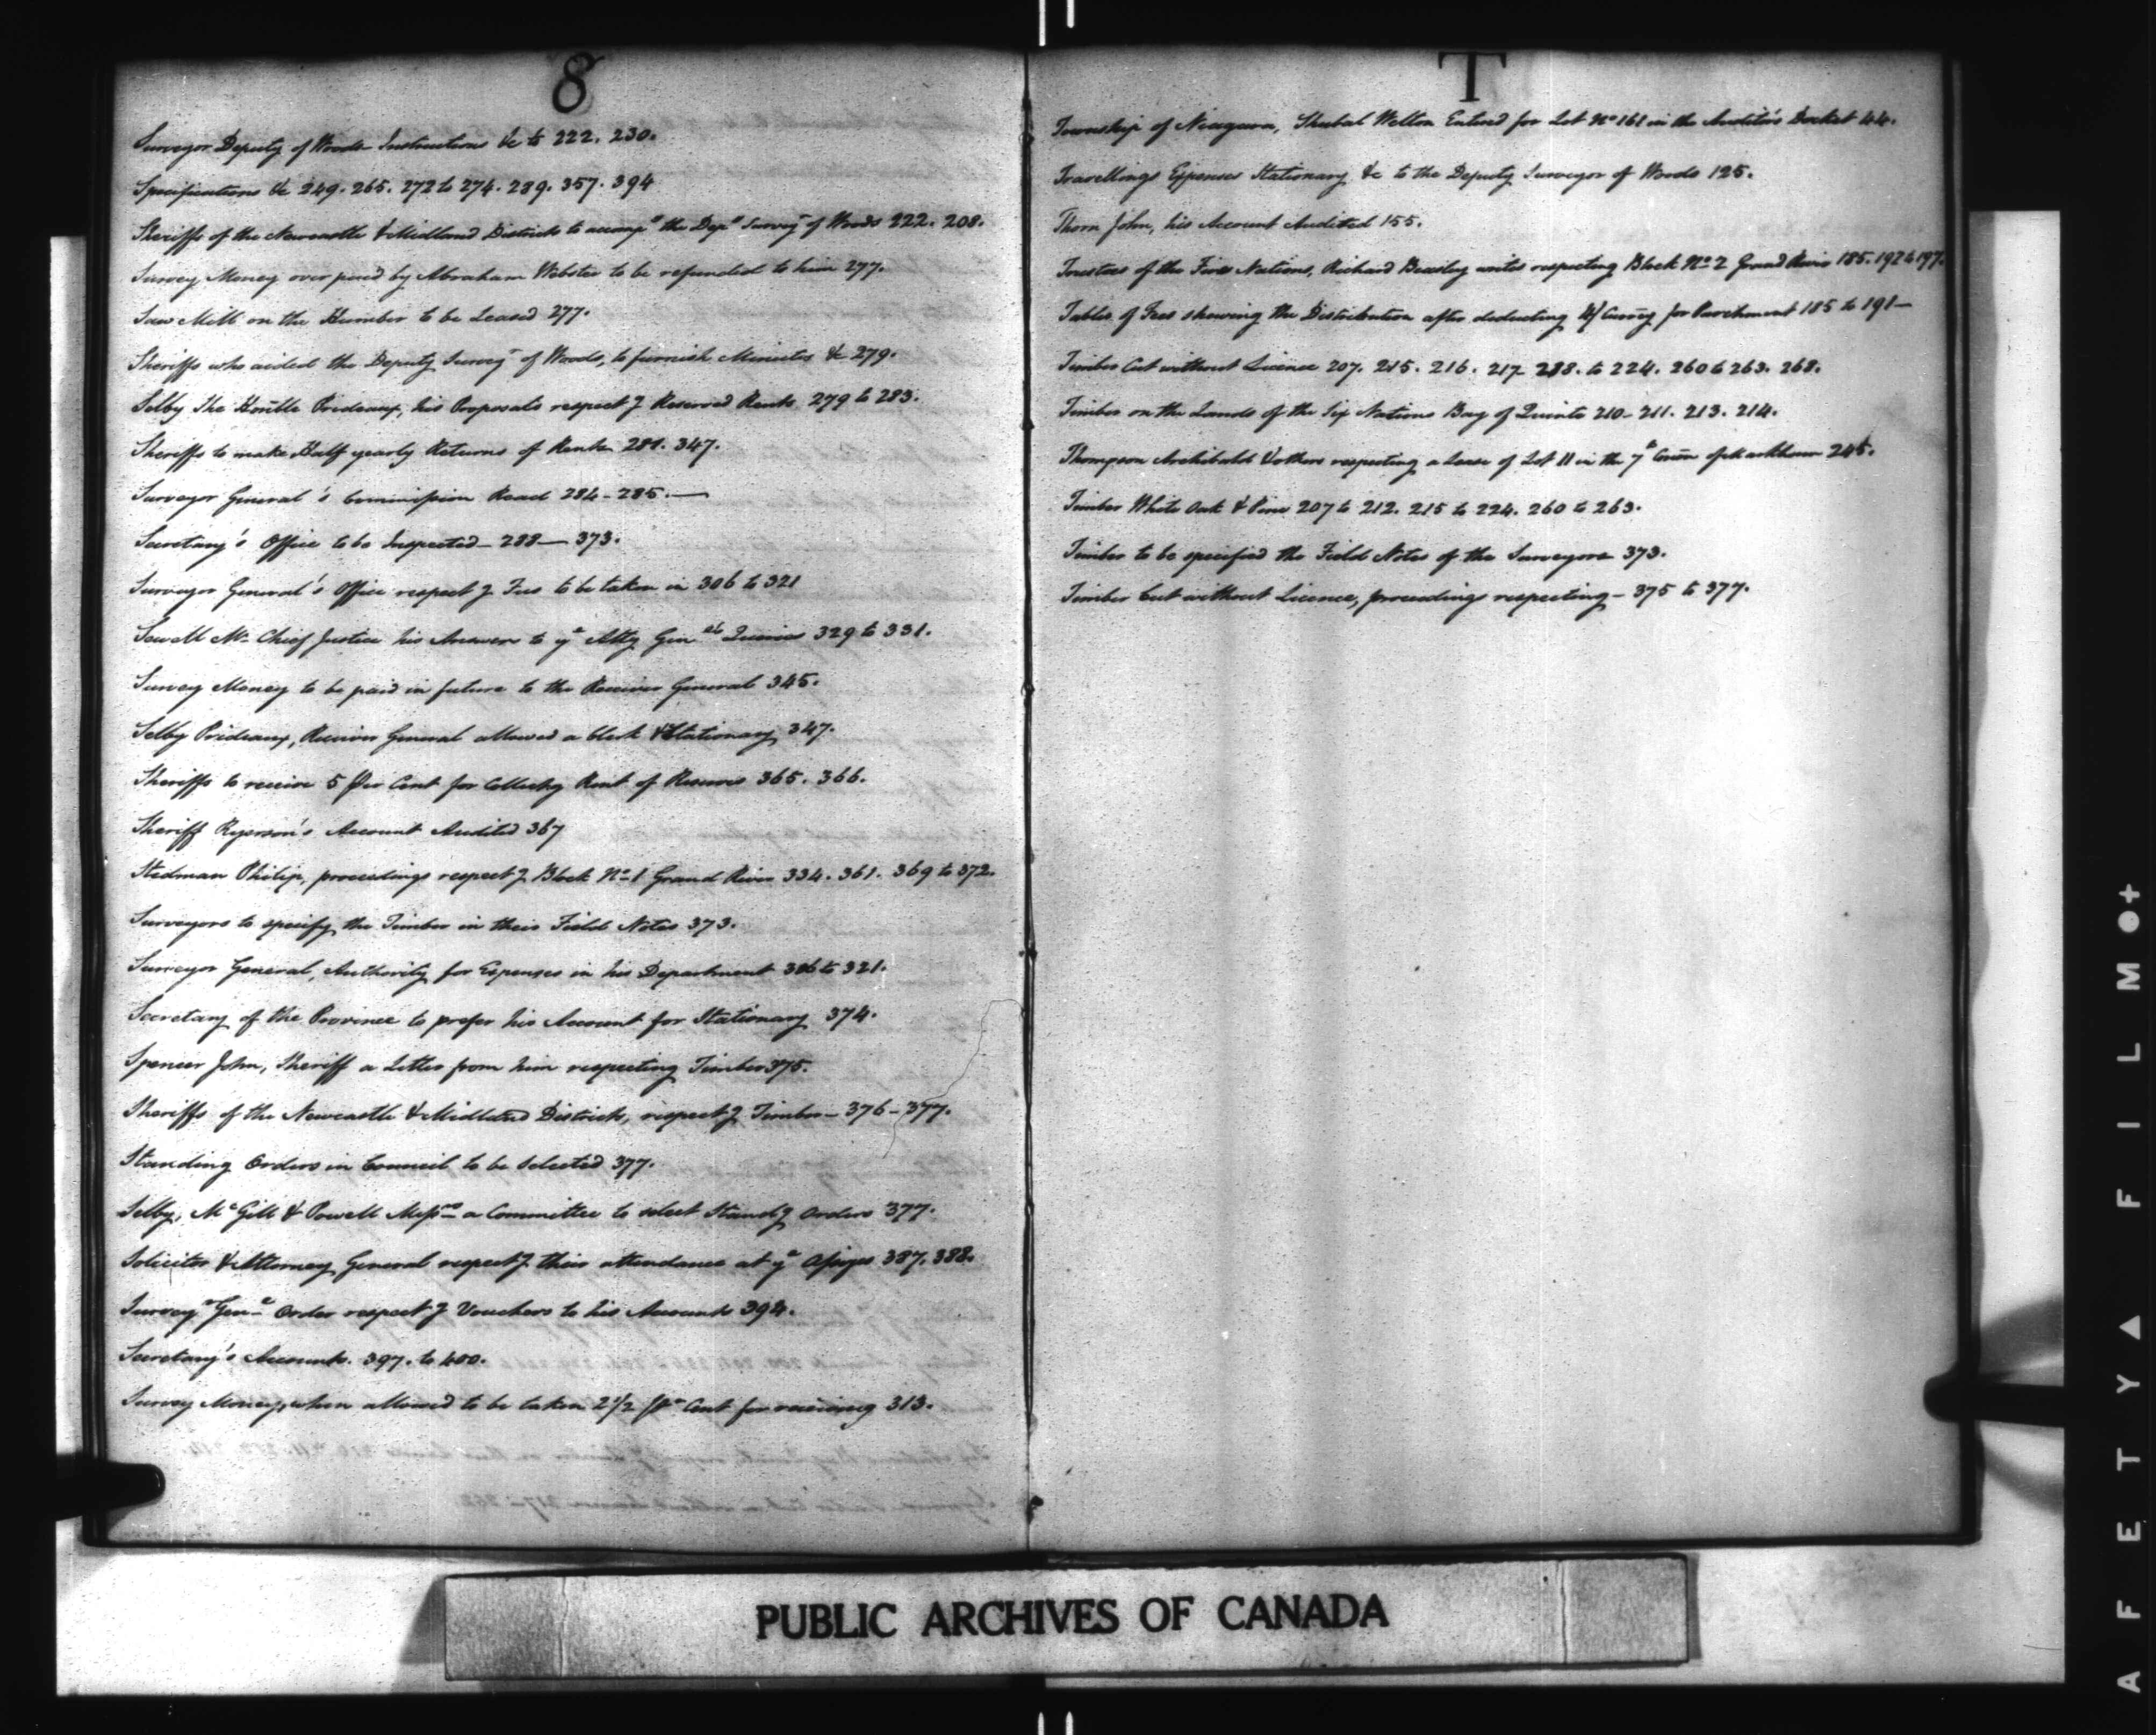 8
Surveyor Deputy of Woods Instructions &c to 222. 230.
Specifications &c 249. 265. 272 to 274. 289. 357. 394
Sheriffs of the Newcastle & Midland Districts to accomp.y the Dep.y Survey.r of Woods 222. 208.
Survey Money over paid by Abraham Webster to be refunded to him 277.
Saw Mill on the Humber to be Leased 277.
Sheriffs who aided the Deputy Survey.r of Woods, to furnish Minutes &c 279.
Selby The Honble Prideaux, his Proposals respect.g Reserved Rents 279 to 283.
Sheriffs to make Half yearly Returns of Rents 281. 347.
Surveyor General's Commission Read 284-285.—
Secretary's Office to be Inspected — 288 — 373.
Surveyor General's Office respect.g Fees to be taken in 306 to 321
Sewell Mr. Chief Justice his Answers to ye Atty Gen.als Queries 329 to 331.
Survey Money to be paid in future to the Receiver General 345.
Selby Prideaux, Receiver General allowed a Clerk & Stationary 347.
Sheriffs to receive 5 Per Cent for Collectg Rent of Reserves 365. 366.
Sheriff Ryerson's Account Audited 367
Stedman Philip, proceedings respect.g Block No. 1 Grand River 334. 361. 369 to 372.
Surveyors to specify the Timber in their Field Notes 373.
Surveyor General, Authority for Expenses in his Department 306 to 321.
Secretary of the Province to prefer his Account for Stationary 374.
Spencer John, Sheriff a Letter from him respecting Timber 375.
Sheriffs of the Newcastle & Midland Districts, respect.g Timber — 376-377.
Standing Orders in Council to be Selected 377.
Selby, McGill & Powell Messrs. a Committee to select Stand.g Orders 377.
Solicitor & Attorney General respect.g their attendance at ye Assizes 387. 388.
Survey.r Gen.l Order respect.g Vouchers to his Accounts 394.
Secretary's Accounts. 397. to 400.
Survey Money, when allowed to be taken 2 1/2 Pr Cent for receiving 313.
T
Township of Niagara, Shubal Welton Entered for Lot No 161 in the Auditor's Docket 44.
Travellings Expenses Stationary &c to the Deputy Surveyor of Woods 125.
Thorn John, his Account Audited 155.
Trustees of the Five Nations, Richard Beasley writes respecting Block No. 2 Grand River 185. 192 to 197.
Tables of Fees shewing the Distribution after deducting Currcy for Parchment 185 to 191—
Timber Cut without Licence 207. 215. 216. 217. 218. to 224. 260 to 263. 268.
Timber on the Lands of the Six Nations Bay of Quinte 210- 211. 213. 214.
Thompson Archibald & others respecting a Lease of Lot 11 in the 7th Conn of Markham 245.
Timber White Oak & Pine 207 to 212. 215 to 224. 260 to 263.
Timber to be specified the Field Notes of the Surveyors 373.
Timber Cut without Licence, proceedings respecting — 375 to 377.
PUBLIC ARCHIVES OF CANADA
AFETY▲FILM●+